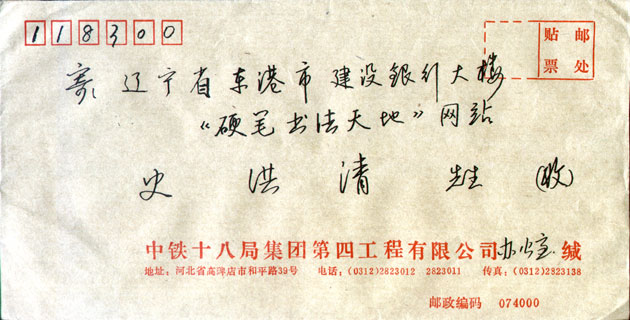 118300
贴 邮
票 处
寄: 辽宁省东港市建设银行大楼
《硬笔书法天地》网站
史洪清 先生 (收)
中铁十八局集团第四工程有限公司办公室 缄
地址：河北省高碑店市和平路39号 电话：(0312)2823012 2823011 传真：(0312)2823138
邮政编码 074000